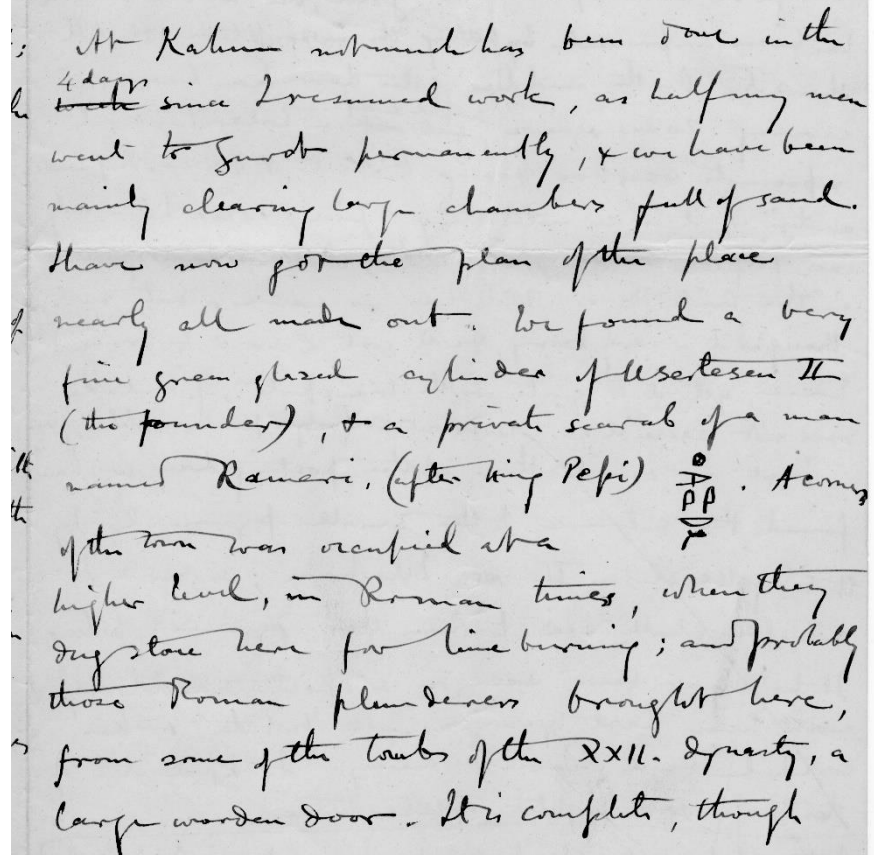 At Kahun not much has been done in the
4 days
week since I resumed work, as half my men
went to Gurob permanently, & we have been
mainly clearing large chambers full of sand.
I have now got the plan of the place
nearly all made out. We found a very
fine green glazed cylinder of Usertesen II
(the founder), & a private scarab of a man
named Rameri, (after King Pepi) . A corner
of the town was occupied at a
higher level, in Roman times, when they
dug stone here for lime burning; and probably
those Roman plunderers brought here,
from some of the tombs of the XXII. dynasty, a
large wooden door. It is complete, though